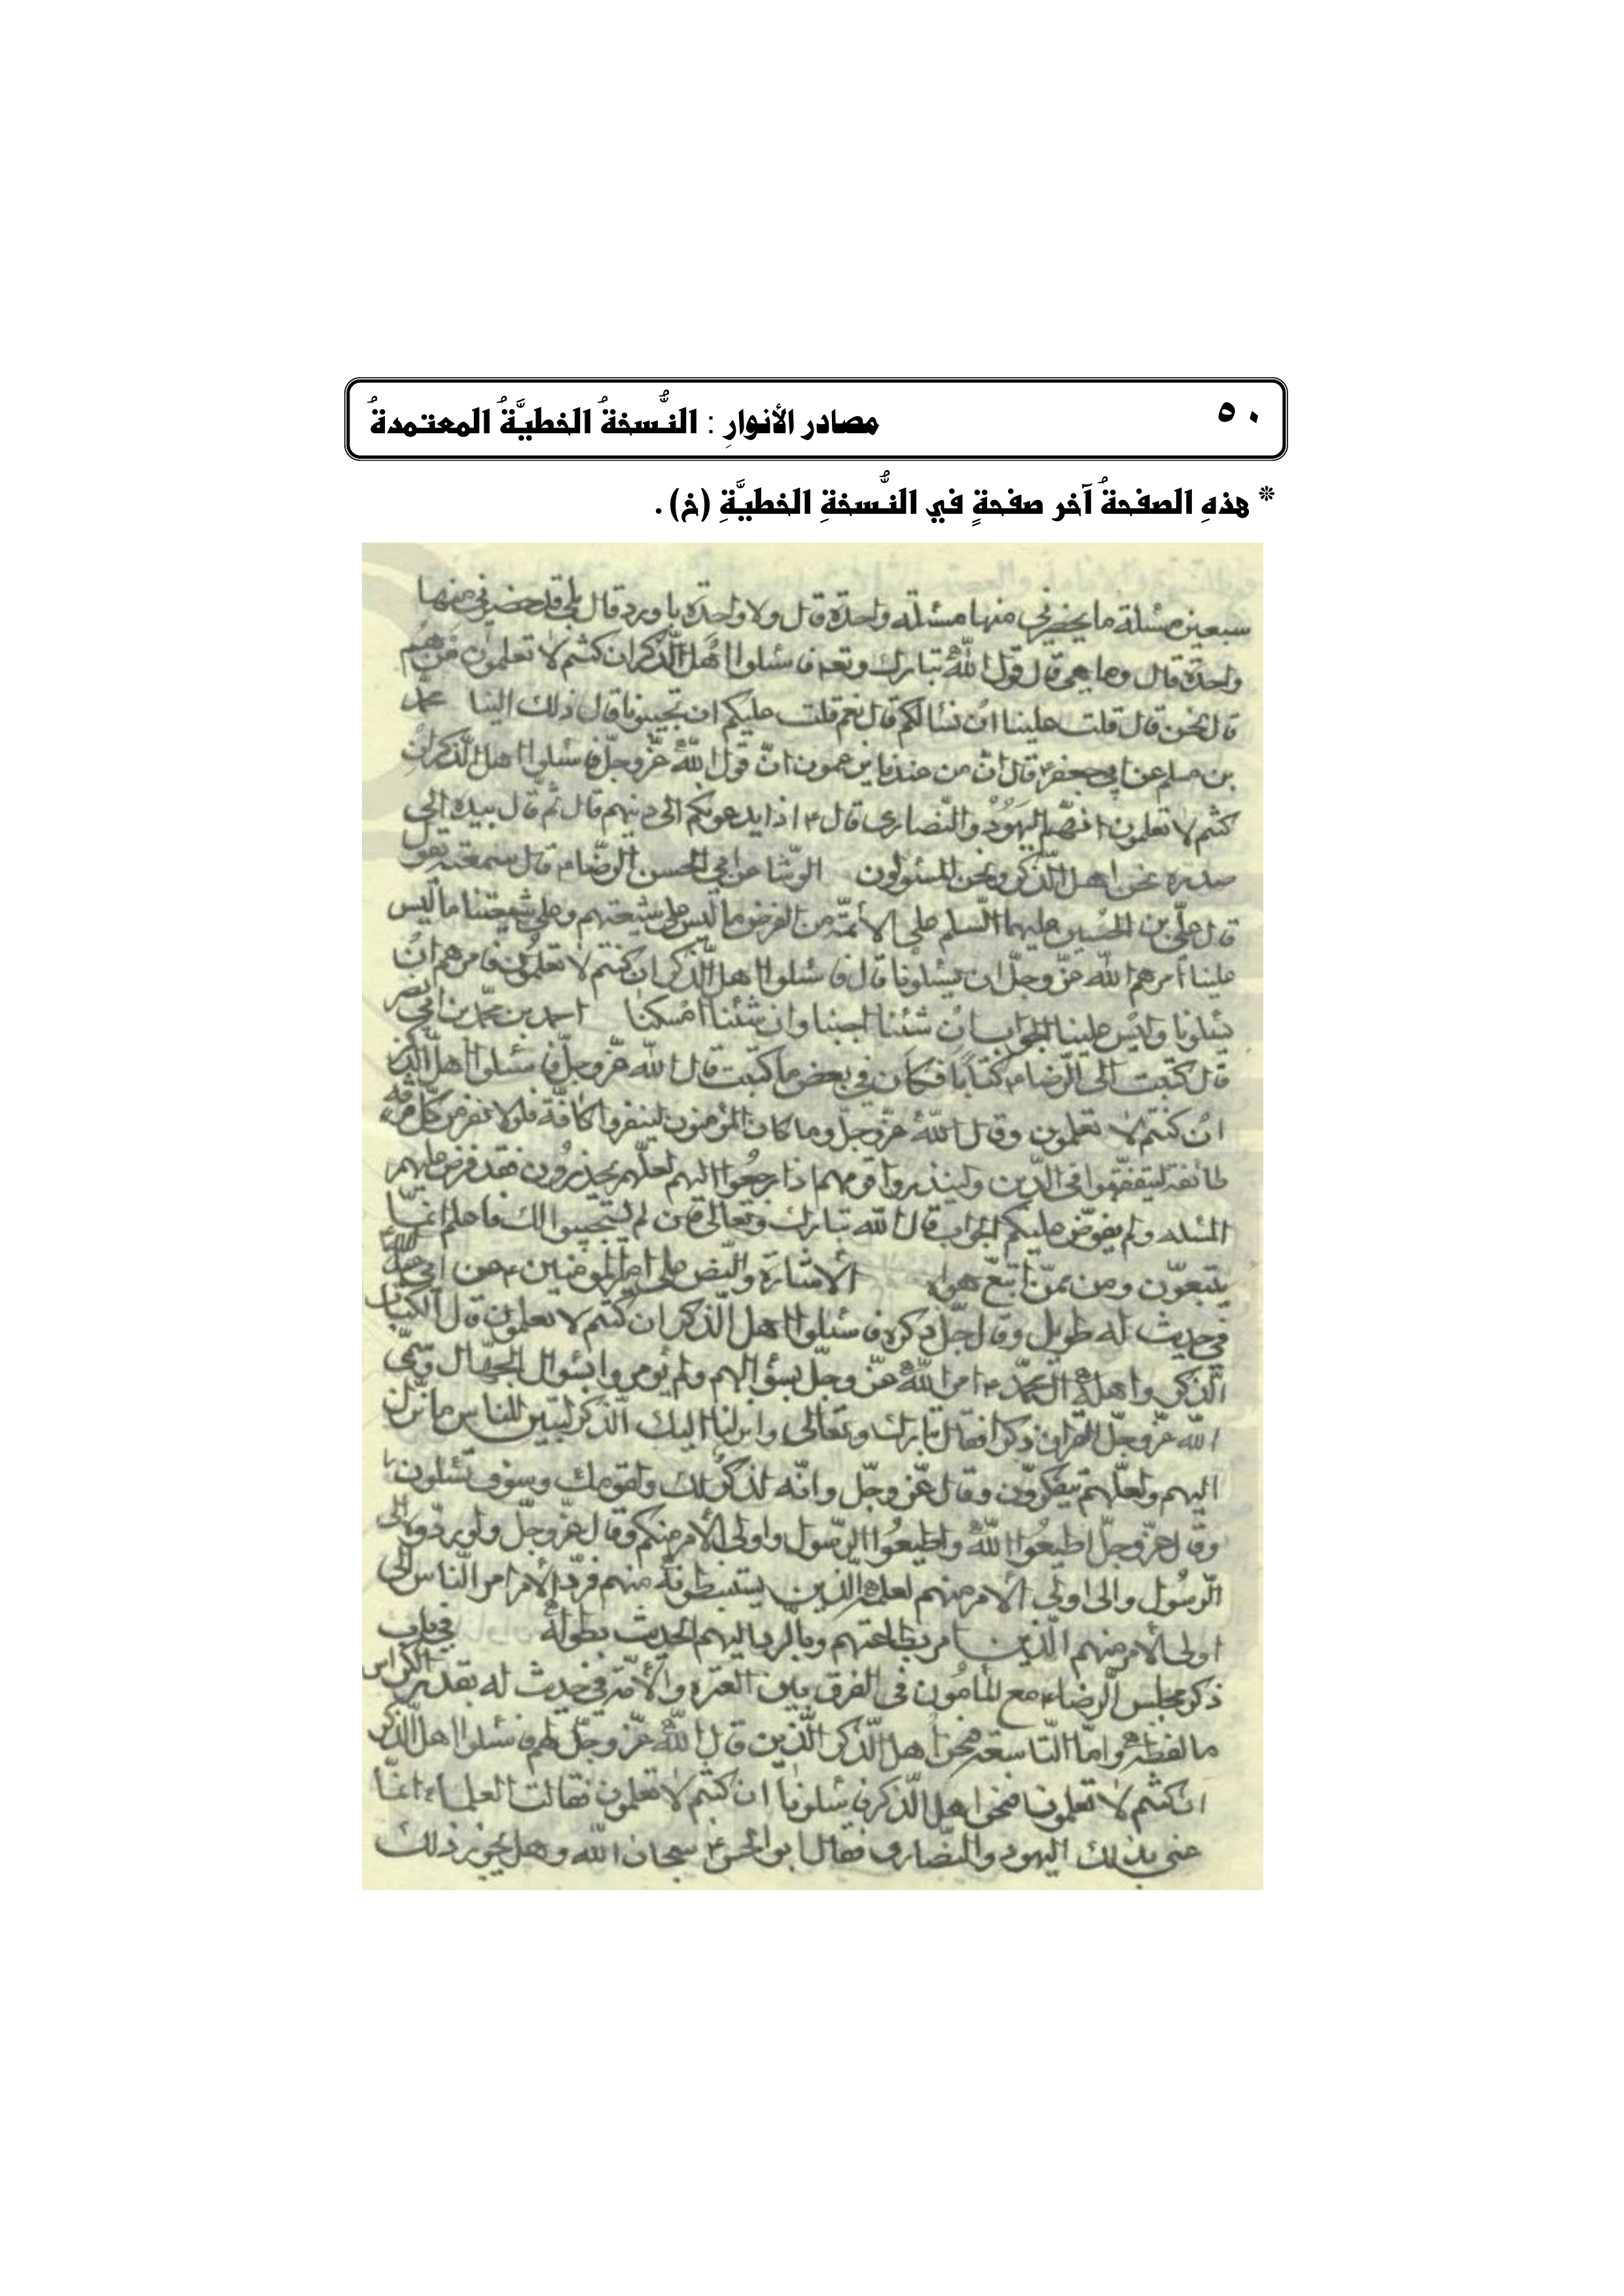 مصادر الأنوارِ : النُّسخةُ الخطيَّةُ المعتمدةُ ٥٠
* هذهِ الصفحةُ آخر صفحةٍ في النُّسخةِ الخطيَّةِ (خ) .
سبعين مسئلة ما يحضرني منها مسئلة واحدة قال ولا واحدة يا ورد قال بلى قد حضرني منها
واحدة قال وما هي قال قول الله تبارك وتعه فاسئلوا اهل الذكر ان كنتم لا تعلمون من هم
قال نحن قال قلت علينا ان نسألكم قال نعم قلت عليكم ان تجيبونا قال ذلك الينا محمد
بن مسلم عن ابي جعفر ع قال ان من عندنا يزعمون ان قول الله عز وجل فاسئلوا اهل الذكر ان
كنتم لا تعلمون انهم اليهود والنصارى قال ع اذا يدعونكم الى دينهم قال ثم قال بيده الى
صدره نحن اهل الذكر ونحن المسئولون الوشا عن ابي الحسن الرضا ع قال سمعته يقول
قال علي بن الحسين عليهما السلم على الأئمة من الفرض ما ليس على شيعتهم وعلى شيعتنا ما ليس
علينا أمرهم الله عز وجل ان يسئلونا قال فاسئلوا اهل الذكر ان كنتم لا تعلمون فامرهم ان
يسئلونا وليس علينا الجواب ان شئنا اجبنا وان شئنا امسكنا احمد بن محمد بن ابي نصر
قال كتبت الى الرضا ع كتابا فكان في بعض ما كتبت قال الله عز وجل فاسئلوا اهل الذكر
ان كنتم لا تعلمون وقال الله عز وجل وما كان المؤمنون لينفروا كافة فلولا نفر من كل فرقة
طائفة ليتفقهوا في الدين ولينذروا قومهم اذا رجعوا اليهم لعلهم يحذرون فقد فرض عليهم
المسئلة ولم يفوض عليكم الجواب قال الله تبارك وتعالى فمن لم يستجيبوا لك فاعلم انما
يتبعون ومن ممن اتبع هواه الأشارة والنص على امير المؤمنين ع عن ابي عبد الله
في حديث له طويل وقال جل ذكره فاسئلوا اهل الذكر ان كنتم لا تعلمون قال الكتاب
الذكر واهله ال محمد ع امر الله عز وجل بسؤالهم ولم يؤمروا بسؤال الجهال وسمى
الله عز وجل القران ذكرا فقال تبارك وتعالى وانزلنا اليك الذكر لتبين للناس ما نزل
اليهم ولعلهم يتفكرون وقال عز وجل وانه لذكر لك ولقومك وسوف تسئلون
وقال عز وجل اطيعوا الله واطيعوا الرسول واولى الأمر منكم وقال عز وجل ولو ردوه الى
الرسول والى اولى الأمر منهم لعلمه الذين يستنبطونه منهم فرد الأمر امر الناس الى
اولى الأمر منهم الذين امر بطاعتهم وبالرد اليهم الحديث بطوله في باب
ذكر مجلس الرضا ع مع المأمون في الفرق بين العترة والأمة في حديث له بقدر الكراس
ما لفظه واما التاسعة فنحن اهل الذكر الذين قال الله عز وجل لهم فاسئلوا اهل الذكر
ان كنتم لا تعلمون فنحن اهل الذكر فاسئلونا ان كنتم لا تعلمون فقالت العلماء انما
عنى بذلك اليهود والنصارى فقال ابو الحسن ع سبحان الله وهل يجوز ذلك